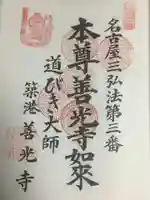 名古屋三弘法第三番
本尊善光寺如來
道びき大師
築港善光寺